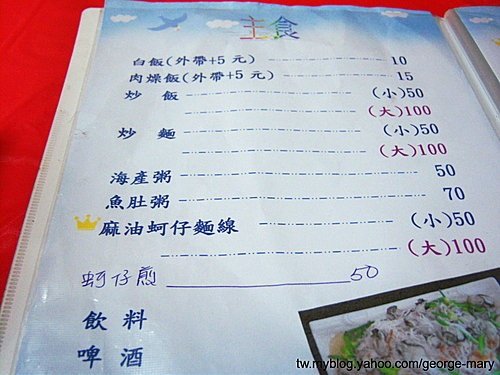 主食
白飯(外帶+5 元) 10
肉燥飯(外帶+5 元) 15
炒 飯 (小)50
(大)100
炒 麵 (小)50
(大)100
海產粥 50
魚肚粥 70
麻油蚵仔麵線 (小)50
(大)100
蚵仔煎 50
飲 料
啤 酒
tw.myblog.yahoo.com/george-mary